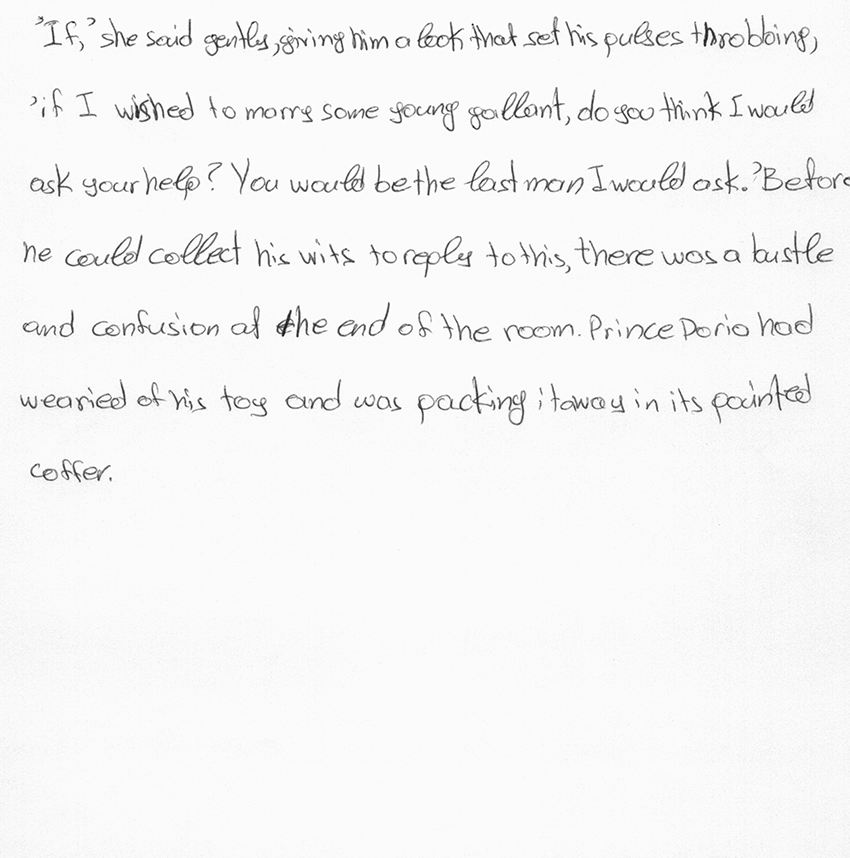 'If,' she said gently, giving him a look that set his pulses throbbing,
'if I wished to marry some young gallant, do you think I would
ask your help? You would be the last man I would ask.' Before
he could collect his wits to reply to this, there was a bustle
and confusion at the end of the room. Prince Dorio had
wearied of his toy and was packing it away in its painted
coffer.